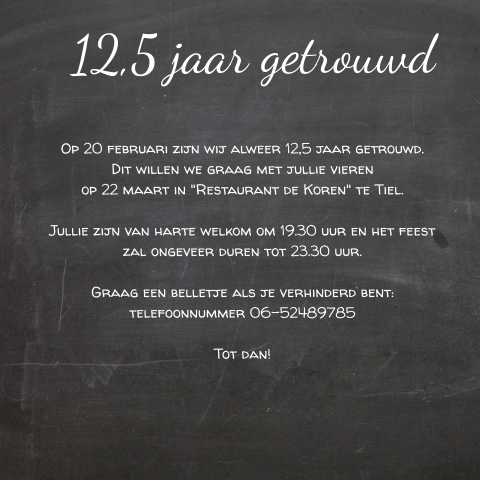 12,5 jaar getrouwd
Op 20 februari zijn wij alweer 12,5 jaar getrouwd.
Dit willen we graag met jullie vieren
op 22 maart in "Restaurant de Koren" te Tiel.
Jullie zijn van harte welkom om 19.30 uur en het feest
zal ongeveer duren tot 23.30 uur.
Graag een belletje als je verhinderd bent:
telefoonnummer 06-52489785
Tot dan!